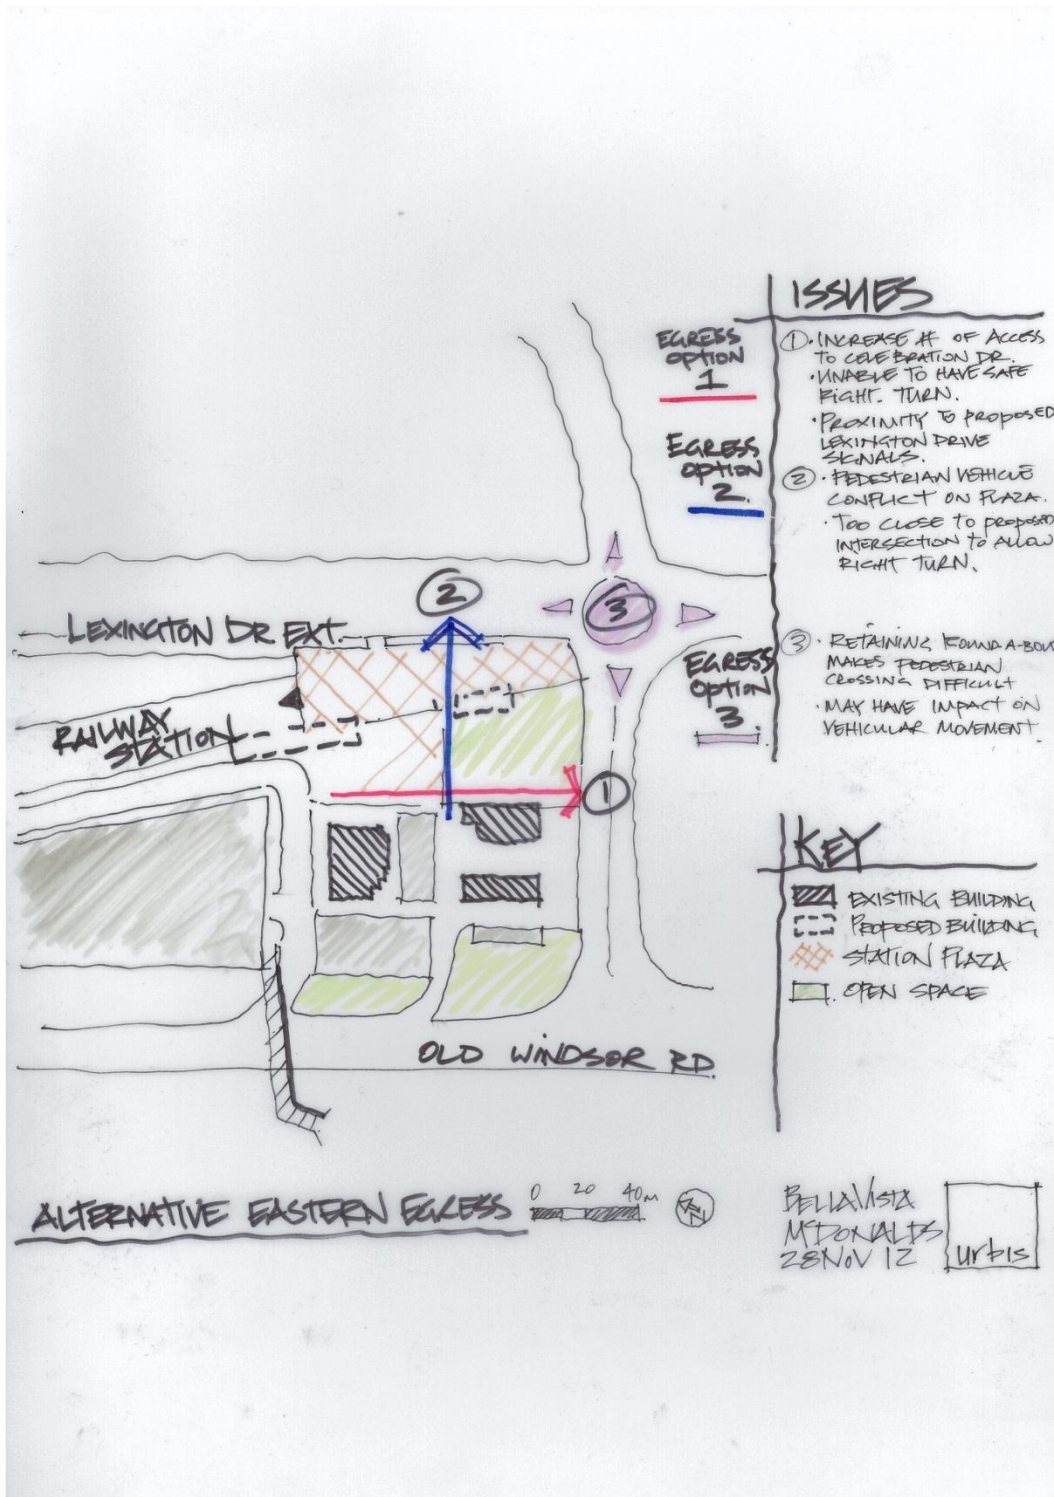 ISSUES
EGRESS
OPTION
1
① · INCREASE # OF ACCESS
TO CELEBRATION DR.
· UNABLE TO HAVE SAFE
RIGHT. TURN.
· PROXIMITY TO PROPOSED
LEXINGTON DRIVE
SIGNALS.
EGRESS
OPTION
2.
② · PEDESTRIAN VEHICLE
CONFLICT ON PLAZA.
· TOO CLOSE TO PROPOSED
INTERSECTION TO ALLOW
RIGHT TURN.
2
3
LEXINGTON DR EXT.
EGRESS
OPTION
3.
③ · RETAINING ROUND-A-BOU
MAKES PEDESTRIAN
CROSSING DIFFICULT
· MAY HAVE IMPACT ON
VEHICULAR MOVEMENT.
RAILWAY
STATION
1
KEY
EXISTING BUILDING
PROPOSED BUILDING
STATION PLAZA
OPEN SPACE
OLD WINDSOR RD.
ALTERNATIVE EASTERN EGRESS
0 20 40m
N
BELLA VISTA
McDONALDS
28 NOV 12
urbis